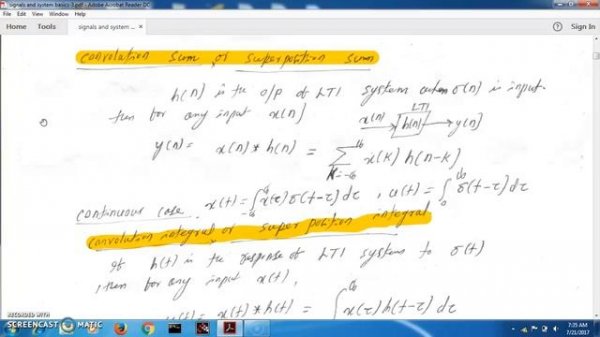 signals and system basics-3.pdf - Adobe Acrobat Reader DC
File Edit View Window Help
Home Tools signals and system ... × Sign In
convolution sum or superposition sum
h[n] is the o/p of LTI system when δ(n) is input
then for any input x[n]
LTI
x(n) → h(n) → y[n]
y(n) = x(n) * h(n) = ∑ x(k) h(n-k)
K=-∞
continuous case x(t) = ∫ x(τ) δ(t-τ) dτ , u(t) = ∫ δ(t-τ) dτ
convolution integral or super position integral
if h(t) is the response of LTI systems to δ(t)
, then for any input x(t),
y(t) = x(t) * h(t) = ∫ x(τ) h(t-τ) dτ
RECORDED WITH
SCREENCAST MATIC
7:35 AM
7/21/2017